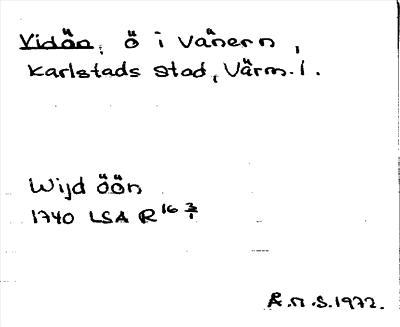 Vidön, ö i Vänern,
Karlstads stad, Värm. l.
Wijd öön
1740 LSA R 16 3/1
Å.N.S. 1972.